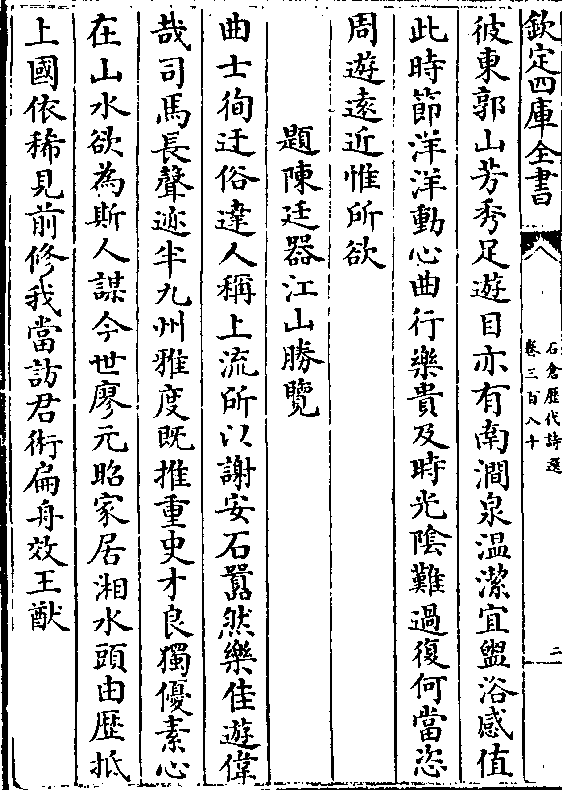 欽定四庫全書
石倉歴代詩選
卷三百八十
二
彼東郭山芳秀足遊目亦有南澗泉温潔宜盥浴感值
此時節洋洋動心曲行樂貴及時光陰難過復何當恣
周遊遠近惟所欲
題陳廷器江山勝覽
曲士徇迂俗達人稱上流所以謝安石囂然樂佳遊偉
哉司馬長聲迹半九州雅度既推重史才良獨優素心
在山水欲為斯人謀今世廖元昭家居湘水頭由歴抵
上國依稀見前修我當訪君術扁舟效王猷